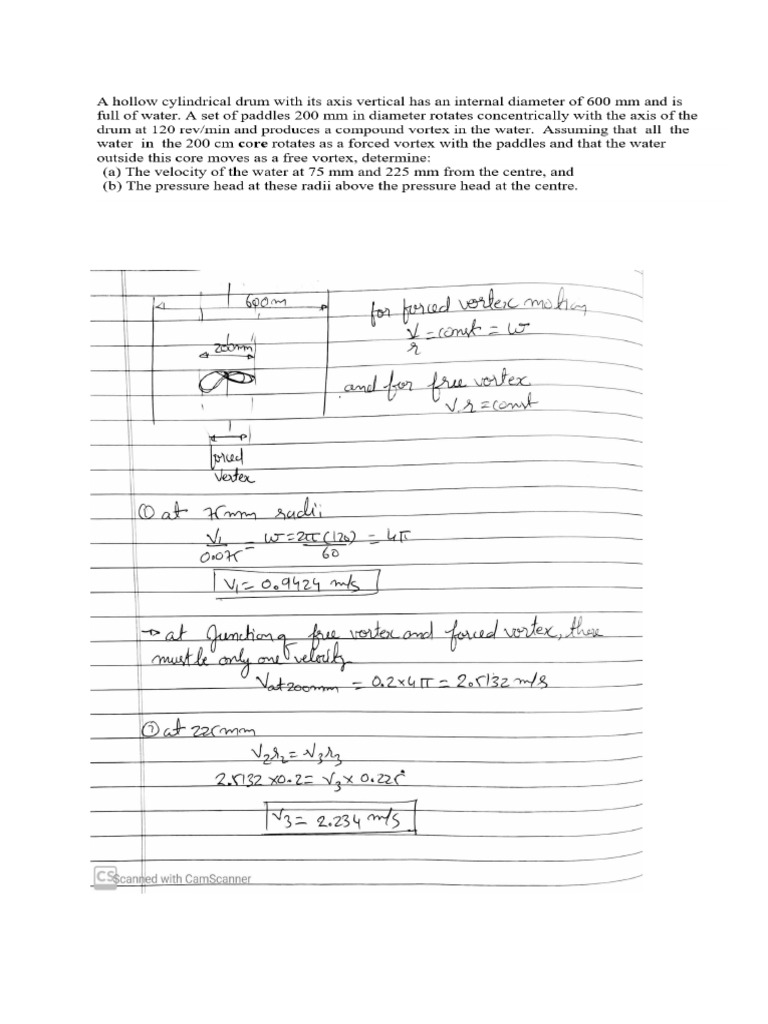 A hollow cylindrical drum with its axis vertical has an internal diameter of 600 mm and is
full of water. A set of paddles 200 mm in diameter rotates concentrically with the axis of the
drum at 120 rev/min and produces a compound vortex in the water. Assuming that all the
water in the 200 cm core rotates as a forced vortex with the paddles and that the water
outside this core moves as a free vortex, determine:
(a) The velocity of the water at 75 mm and 225 mm from the centre, and
(b) The pressure head at these radii above the pressure head at the centre.
600m
for forced vortex motion
V/r = const = ω
200mm
and for free vortex
V.r = const
forced
vortex
① at 75mm radii
V₁/0.075 = ω = 2π(120)/60 = 4π
V₁ = 0.9424 m/s
→ at Junction of free vortex and forced vortex, there
must be only one velocity
Vat 200mm = 0.2×4π = 2.5132 m/s
② at 225mm
V₂r₂ = V₃r₃
2.5132 ×0.2 = V₃ × 0.225
V₃ = 2.234 m/s
CS Scanned with CamScanner